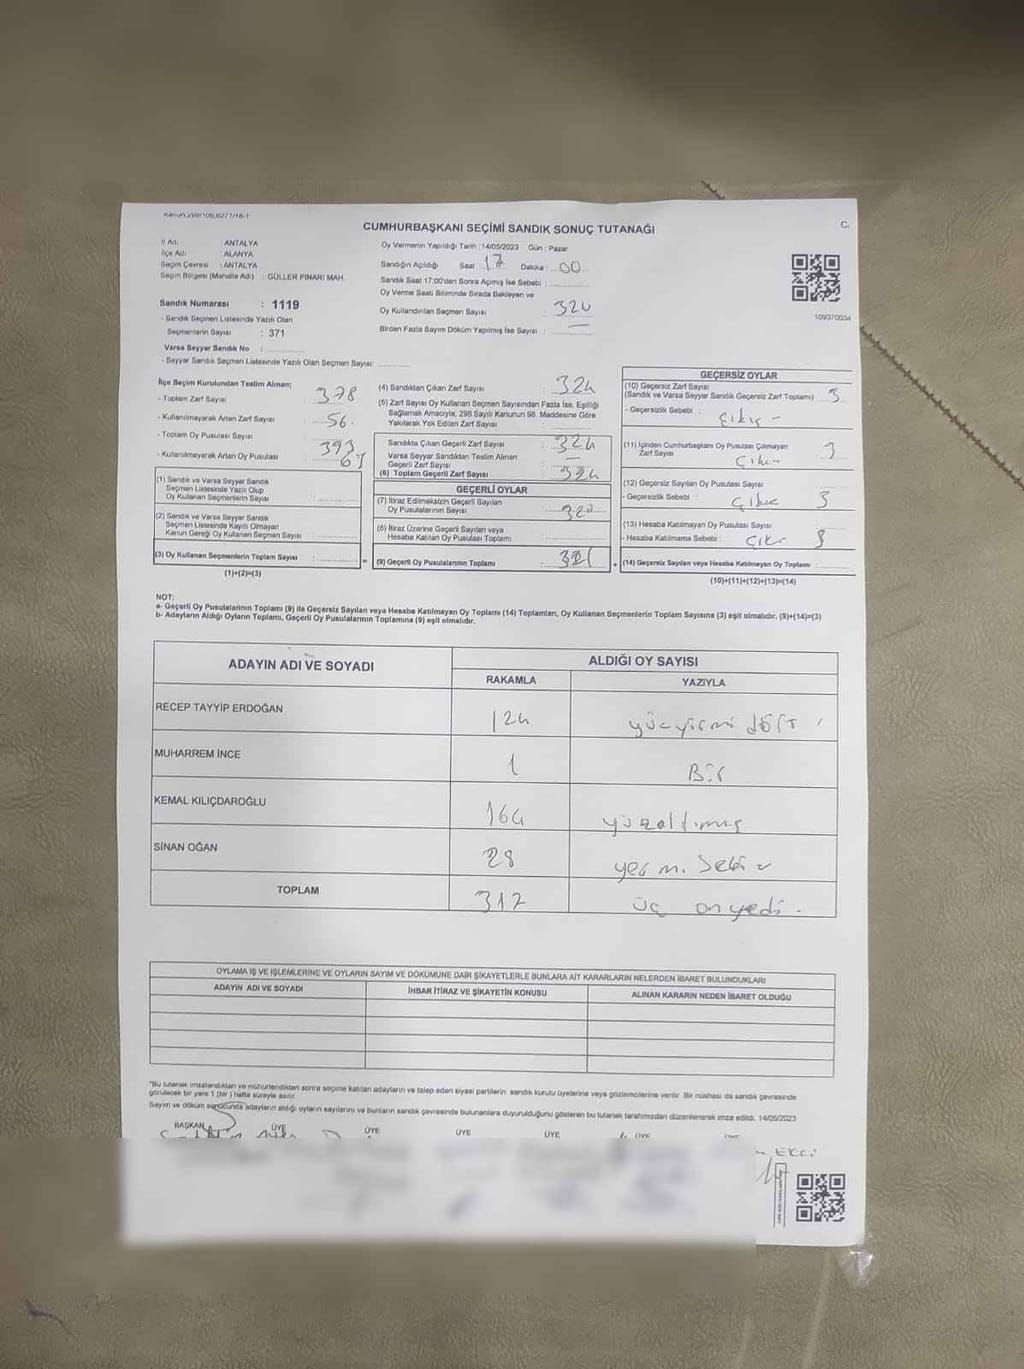 CUMHURBAŞKANI SEÇİMİ SANDIK SONUÇ TUTANAĞI
C.
İl Adı : ANTALYA
İlçe Adı : ALANYA
Seçim Çevresi : ANTALYA
Seçim Bölgesi (Mahalle Adı) : GÜLLER PINARI MAH.
Sandık Numarası : 1119
- Sandık Seçmen Listesinde Yazılı Olan
Seçmenlerin Sayısı : 371
Varsa Seyyar Sandık No :
- Seyyar Sandık Seçmen Listesinde Yazılı Olan Seçmen Sayısı:
Oy Vermenin Yapıldığı Tarih : 14/05/2023 Gün : Pazar
Sandığın Açıldığı Saat 17 Dakika : 00
Sandık Saat 17:00'den Sonra Açımış İse Sebebi :
Oy Verme Saati Bitiminde Sırada Bekleyen ve
Oy Kullandırılan Seçmen Sayısı :
Birden Fazla Sayım Döküm Yapılmış İse Sayısı : —
109370034
İlçe Seçim Kurulundan Teslim Alınan;
- Toplam Zarf Sayısı : 378
- Kullanılmayarak Artan Zarf Sayısı : 56
- Toplam Oy Pusulası Sayısı : 393
- Kullanılmayarak Artan Oy Pusulası :
(1) Sandık ve Varsa Seyyar Sandık
Seçmen Listesinde Yazılı Olup
Oy Kullanan Seçmenlerin Sayısı :
(2) Sandık ve Varsa Seyyar Sandık
Seçmen Listesinde Kayıtlı Olmayan
Kanun Gereği Oy Kullanan Seçmen Sayısı :
(3) Oy Kullanan Seçmenlerin Toplam Sayısı :
(1)+(2)=(3)
(4) Sandıktan Çıkan Zarf Sayısı : 324
(5) Zarf Sayısı Oy Kullanan Seçmen Sayısından Fazla İse, Eşitliği
Sağlamak Amacıyla; 298 Sayılı Kanunun 98. Maddesine Göre
Yakılarak Yok Edilen Zarf Sayısı :
Sandıkta Çıkan Geçerli Zarf Sayısı : 324
Varsa Seyyar Sandıktan Teslim Alınan
Geçerli Zarf Sayısı : —
(6) Toplam Geçerli Zarf Sayısı : 324
GEÇERLİ OYLAR
(7) İtiraz Edilmeksizin Geçerli Sayılan
Oy Pusulalarının Sayısı :
(8) İtiraz Üzerine Geçerli Sayılan veya
Hesaba Katılan Oy Pusulası Toplamı :
(9) Geçerli Oy Pusulalarının Toplamı : 321
GEÇERSİZ OYLAR
(10) Geçersiz Zarf Sayısı
(Sandık ve Varsa Seyyar Sandık Geçersiz Zarf Toplamı) : 3
- Geçersizlik Sebebi :
(11) İçinden Cumhurbaşkanı Oy Pusulası Çıkmayan
Zarf Sayısı :
(12) Geçersiz Sayılan Oy Pusulası Sayısı :
- Geçersizlik Sebebi : 3
(13) Hesaba Katılmayan Oy Pusulası Sayısı :
- Hesaba Katılmama Sebebi : 3
+ (14) Geçersiz Sayılan veya Hesaba Katılmayan Oy Toplamı :
(10)+(11)+(12)+(13)=(14)
NOT:
a- Geçerli Oy Pusulalarının Toplamı (9) ile Geçersiz Sayılan veya Hesaba Katılmayan Oy Toplamı (14) Toplamları, Oy Kullanan Seçmenlerin Toplam Sayısına (3) eşit olmalıdır. (9)+(14)=(3)
b- Adayların Aldığı Oyların Toplamı, Geçerli Oy Pusulalarının Toplamına (9) eşit olmalıdır.
ADAYIN ADI VE SOYADI
ALDIĞI OY SAYISI
RAKAMLA YAZIYLA
RECEP TAYYİP ERDOĞAN 124 yüzyirmi dört
MUHARREM İNCE 1 Bir
KEMAL KILIÇDAROĞLU 164 yüzaltmış
SİNAN OĞAN 28
TOPLAM 317 üç onyedi.
OYLAMA İŞ VE İŞLEMLERİNE VE OYLARIN SAYIM VE DÖKÜMÜNE DAİR ŞİKAYETLERLE BUNLARA AİT KARARLARIN NELERDEN İBARET BULUNDUKLARI
ADAYIN ADI VE SOYADI İHBAR İTİRAZ VE ŞİKAYETİN KONUSU ALINAN KARARIN NEDEN İBARET OLDUĞU
*Bu tutanak imzalandıktan ve mühürlendikten sonra seçime katılan adayların ve talep eden siyasi partilerin sandık kurulu üyelerine veya gözlemcilerine verilir. Bir nüshası da sandık çevresinde
görülecek bir yere 1 (bir) hafta süreyle asılır.
Sayım ve döküm sonucunda adayların aldığı oyların sayılarını ve bunların sandık çevresinde bulunanlara duyurulduğunu gösteren bu tutanak tarafımızdan düzenlenerek imza edildi. 14/05/2023
BAŞKAN ÜYE ÜYE ÜYE ÜYE ÜYE